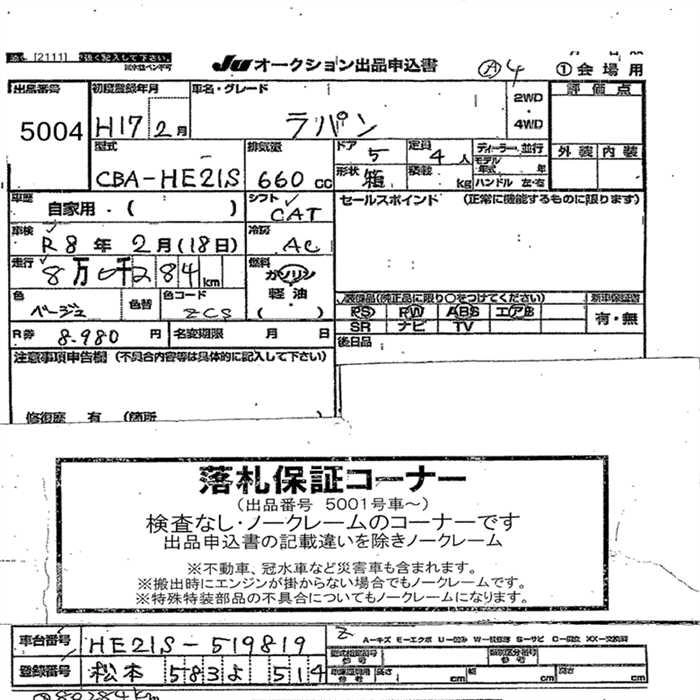 [2111] 強く記入して下さい。
JU オークション出品申込書 Ⓐ4 ①会場用
出品番号 初度登録年月 車名・グレード 評価点
5004 H17 2月 ラパン 2WD・4WD
型式 排気量 ドア 定員 ディーラー・並行 外装 内装
CBA-HE21S 660cc 5 4人 モデル年式 年
形状 箱 積載 kg ハンドル 左・右
車歴 自家用・( ) シフト CAT セールスポイント (正常に機能するものに限ります)
車検 R8年2月(18日) 冷房 AC
走行 8万0千284km 燃料 ガソリン 軽油・( )
色 ベージュ 色替 色コード ZCS 装備品(純正品に限り○をつけてください) 新車保証書
PS PW ABS エアB 有・無
SR ナビ TV
R券 8,980円 名変期限 月 日 後日品
注意事項申告欄 (不具合内容等は具体的に記入して下さい)
修復歴 有 (箇所
落札保証コーナー
(出品番号 5001号車~)
検査なし・ノークレームのコーナーです
出品申込書の記載違いを除きノークレーム
※不動車、冠水車など災害車も含まれます。
※搬出時にエンジンが掛からない場合でもノークレームです。
※特殊特装部品の不具合についてもノークレームになります。
車台番号 HE21S-519819 A-キズ E-エクボ U-凹み W-板修理 S-サビ C-腐食 XX-交換済
登録番号 松本 583よ 514 型式指定番号 参考 類別区分番号 参考
長さ cm 幅 cm 高さ cm
80284km